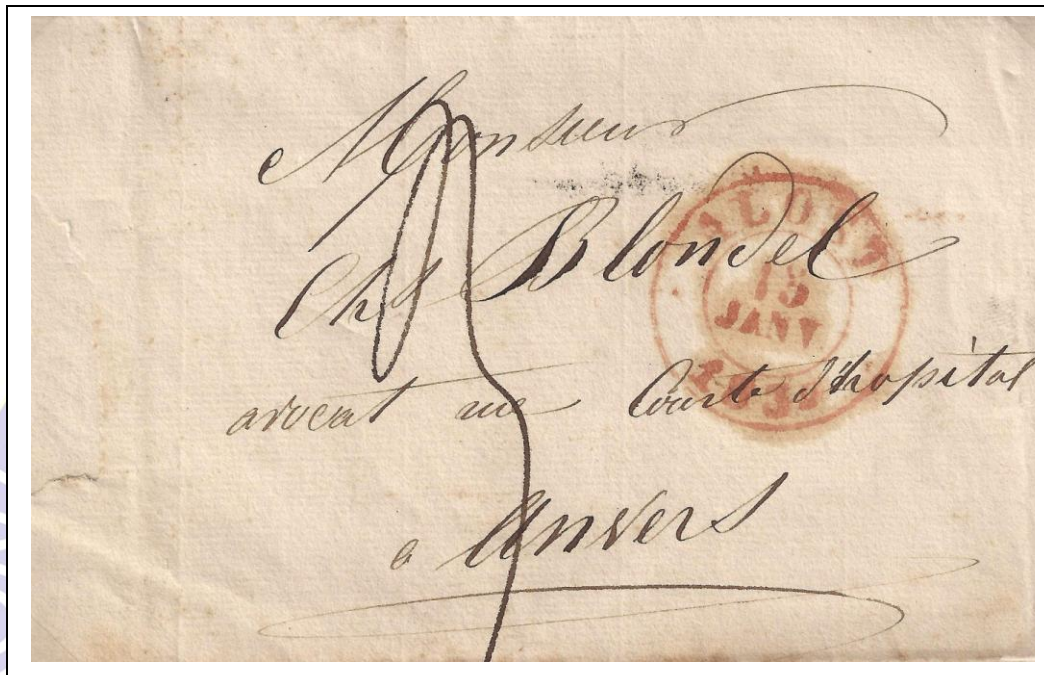 Monsieur
Chs Blondel
avocat rue Courte d'hopital
a Anvers
ALOST
13
JANV